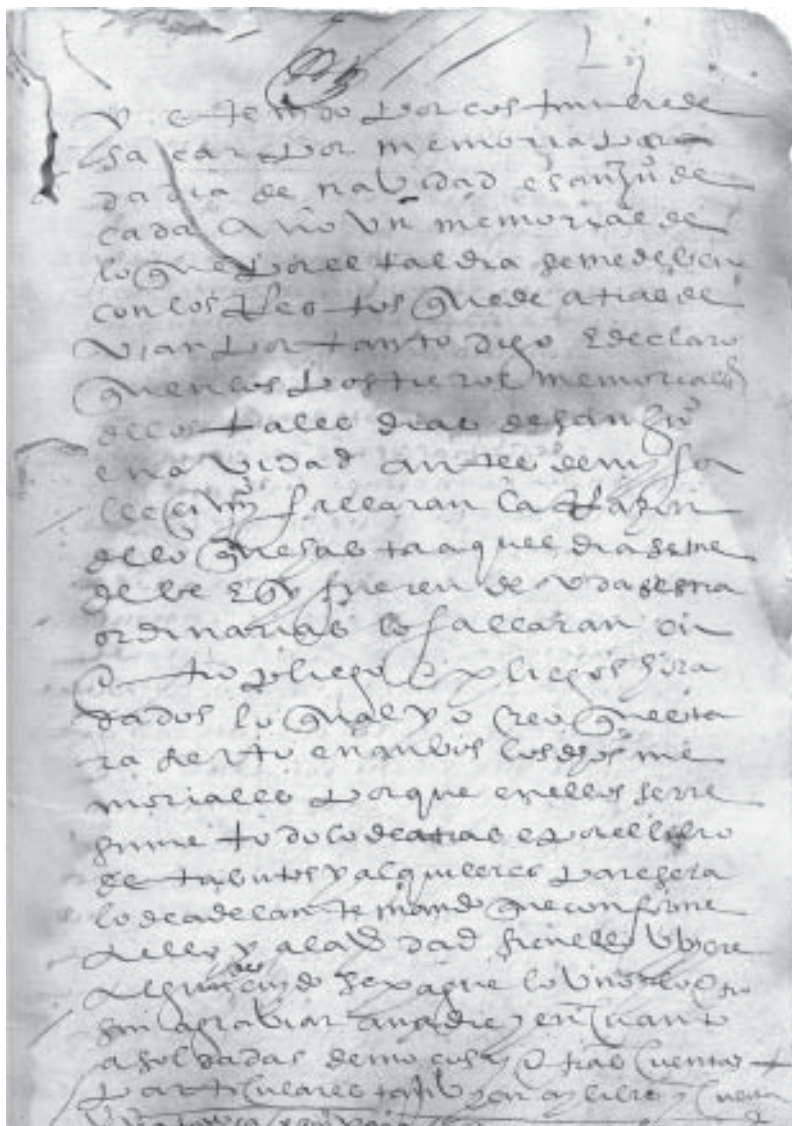 y e tenido por costunbre de
sacar por memoria por
da dia de navidad e san Juº de
cada año un memorial de
lo que por el tal dia se me debe
con los Restos que de atras de
vian por tanto digo E declaro
que en los postreros memoriales
de los tales dias de san Juº
e navidad antes de my fa
llecimyº fallaran la Razon
de lo que hasta aquel dia se me
debe E sy fueren deudas estra
ordinarias lo fallaran en
otro pliego e pliegos
dados lo qual yo creo que esta
ra en anbos los dhos me
moriales porque en ellos se rre
sume todo lo de atras e por el libro
de tributos y alquileres paresera
lo de adelante mando que conforme
a ello y a la verdad si en ello ubiere
algun se pague lo uno y lo otro
sin agraviar a nadie y en quanto
a soldadas de moços y otras quentas
particulares tanbien ay libro y quenta